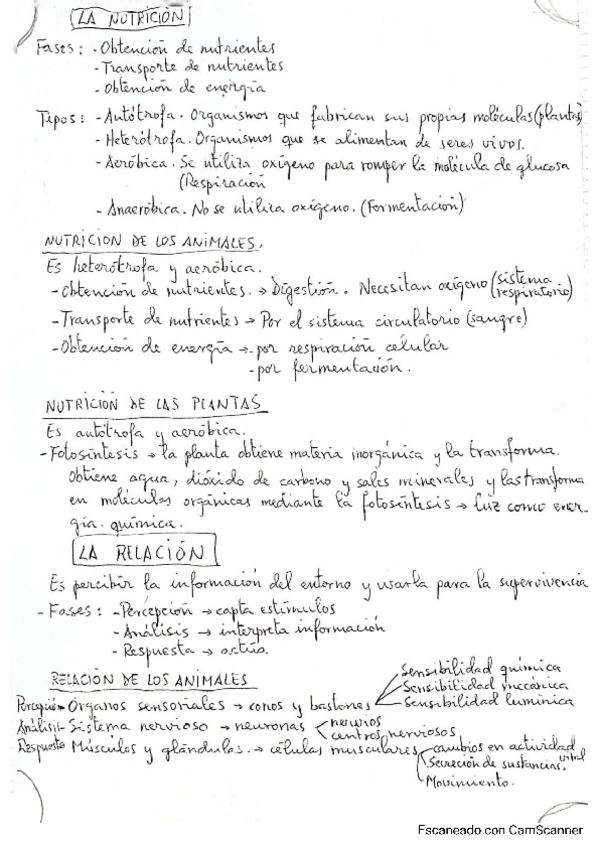 LA NUTRICIÓN
Fases: - Obtención de nutrientes
- Transporte de nutrientes
- Obtención de energía
Tipos: - Autótrofa. Organismos que fabrican sus propias moléculas (plantas)
- Heterótrofa. Organismos que se alimentan de seres vivos.
- Aeróbica. Se utiliza oxígeno para romper la molécula de glucosa
(Respiración
- Anaeróbica. No se utiliza oxígeno. (Fermentación)
NUTRICION DE LOS ANIMALES.
Es heterótrofa y aeróbica.
- Obtención de nutrientes. → Digestión. Necesitan oxígeno (sistema
respiratorio)
- Transporte de nutrientes → Por el sistema circulatorio (sangre)
- Obtención de energía → - por respiración celular
- por fermentación.
NUTRICIÓN DE LAS PLANTAS
Es autótrofa y aeróbica.
- Fotosíntesis → la planta obtiene materia inorgánica y la transforma.
Obtiene agua, dióxido de carbono y sales minerales y las transforma
en moléculas orgánicas mediante la fotosíntesis → luz como ener-
gía química.
LA RELACIÓN
Es percibir la información del entorno y usarla para la supervivencia
- Fases: - Percepción → capta estímulos
- Análisis → interpreta información
- Respuesta → actúa.
RELACIÓN DE LOS ANIMALES
Sensibilidad química
Sensibilidad mecánica
Órganos sensoriales → conos y bastones Sensibilidad lumínica
Análisis - Sistema nervioso → neuronas nervios
centros nerviosos
Respuesta Músculos y glándulas. → células musculares cambios en actividad vital
Secreción de sustancias.
Movimiento.
Escaneado con CamScanner